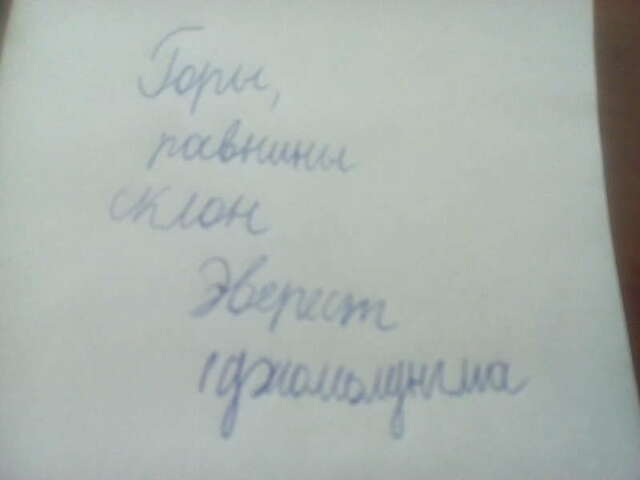 Горы,
равнины
склон
Эверест
(джомолунгма